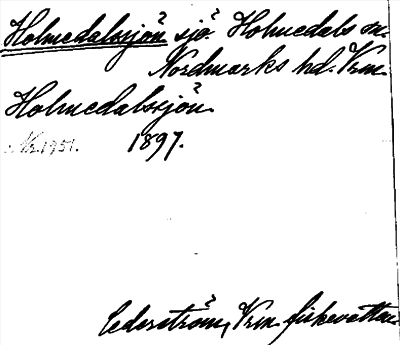 Holmedalssjön sjö Holmedals sn.
Nordmarks hd. Vrm.
Holmedalssjön.
Nr. 1951. 1897.
Cederström, Vrm. fiskevatten